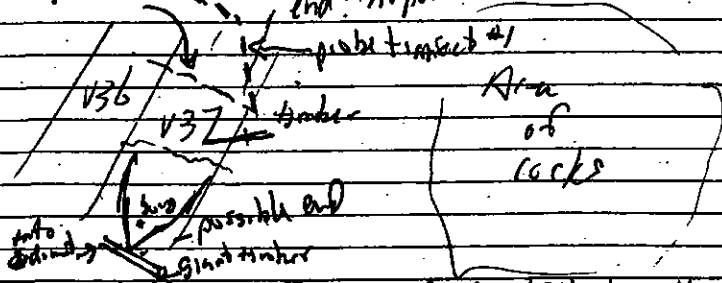 end
probe transect #1
V36
V37
timber
Area
of
rocks
possible end
Giant timber